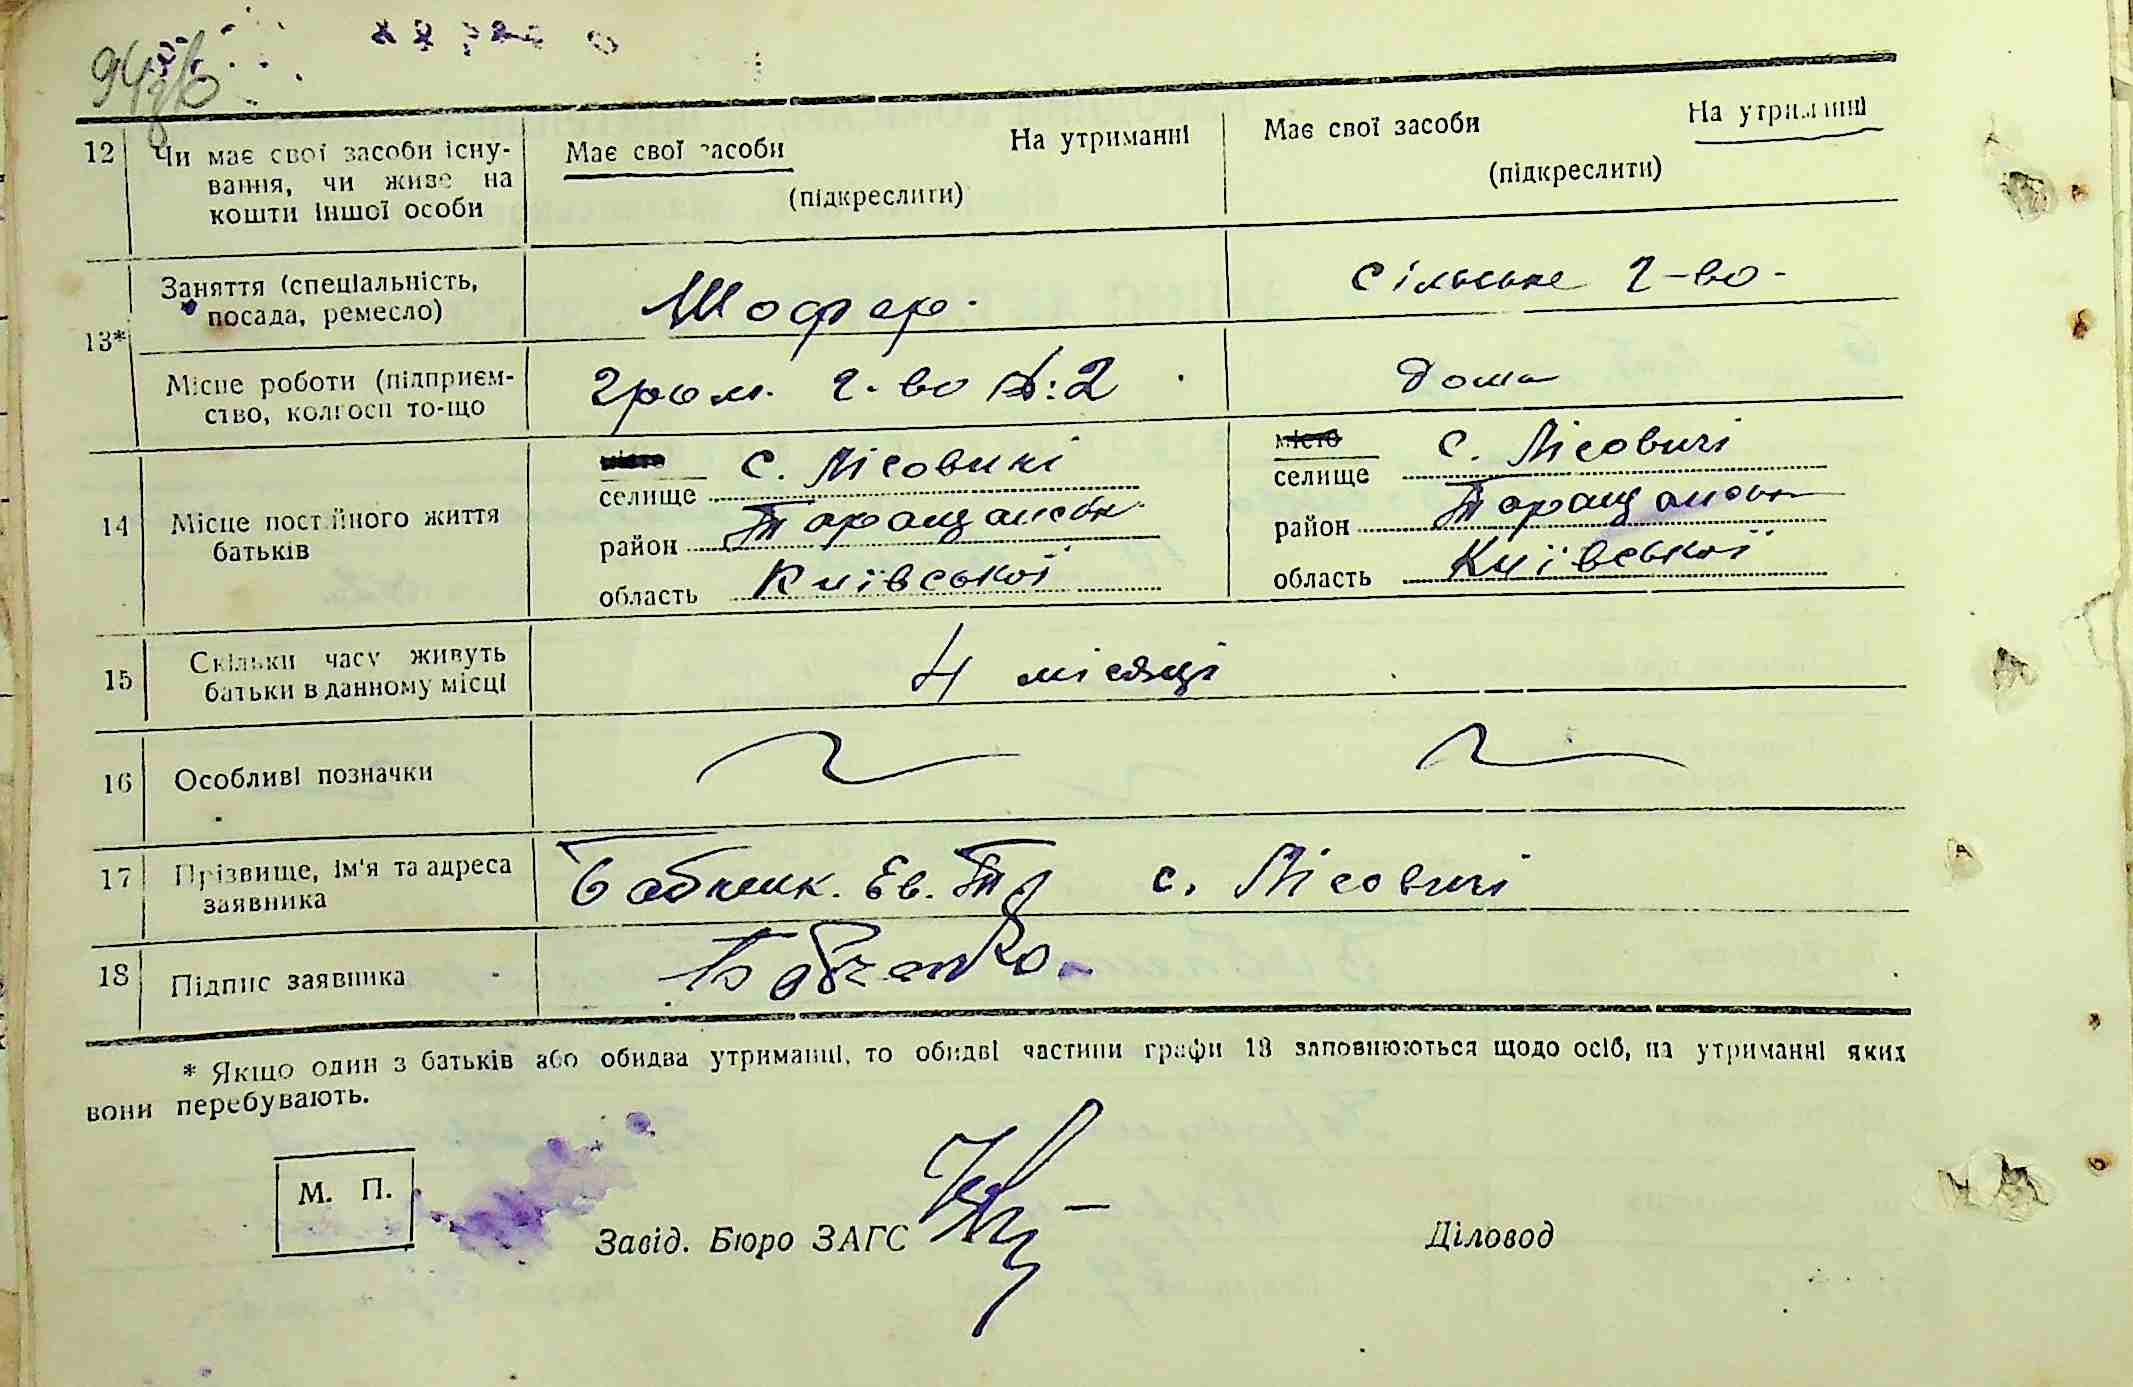 94 зв
12 Чи має свої засоби існу- Має свої засоби На утриманні Має свої засоби На утриманні
вання, чи живе на (підкреслити) (підкреслити)
кошти іншої особи
Заняття (спеціальність, Шофер. Сільське г-во -
посада, ремесло)
13*
Місце роботи (підприєм- Гром. г-во №: 2 Дома
ство, колгосп то-що
14 Місце постійного життя
батьків
місто с. Лісовичі
селище
район Таращанськ
область Київської
місто с. Лісовичі
селище
район Таращанськ
область Київської
15 Скільки часу живуть 4 місяці
батьки в данному місці
16 Особливі позначки
17 Прізвище, ім'я та адреса Ев. с. Лісовичі
заявника
18 Підпис заявника
* Якщо один з батьків або обидва утриманці, то обидві частини графи 13 заповнюються щодо осіб, на утриманні яких
вони перебувають.
М. П.
Завід. Бюро ЗАГС Діловод